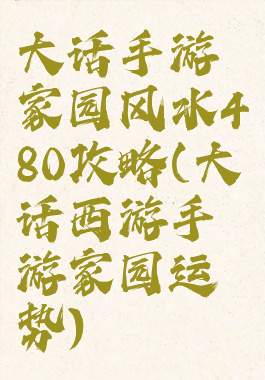 大话手游
家园风水4
80攻略(大
话西游手
游家园运
势)